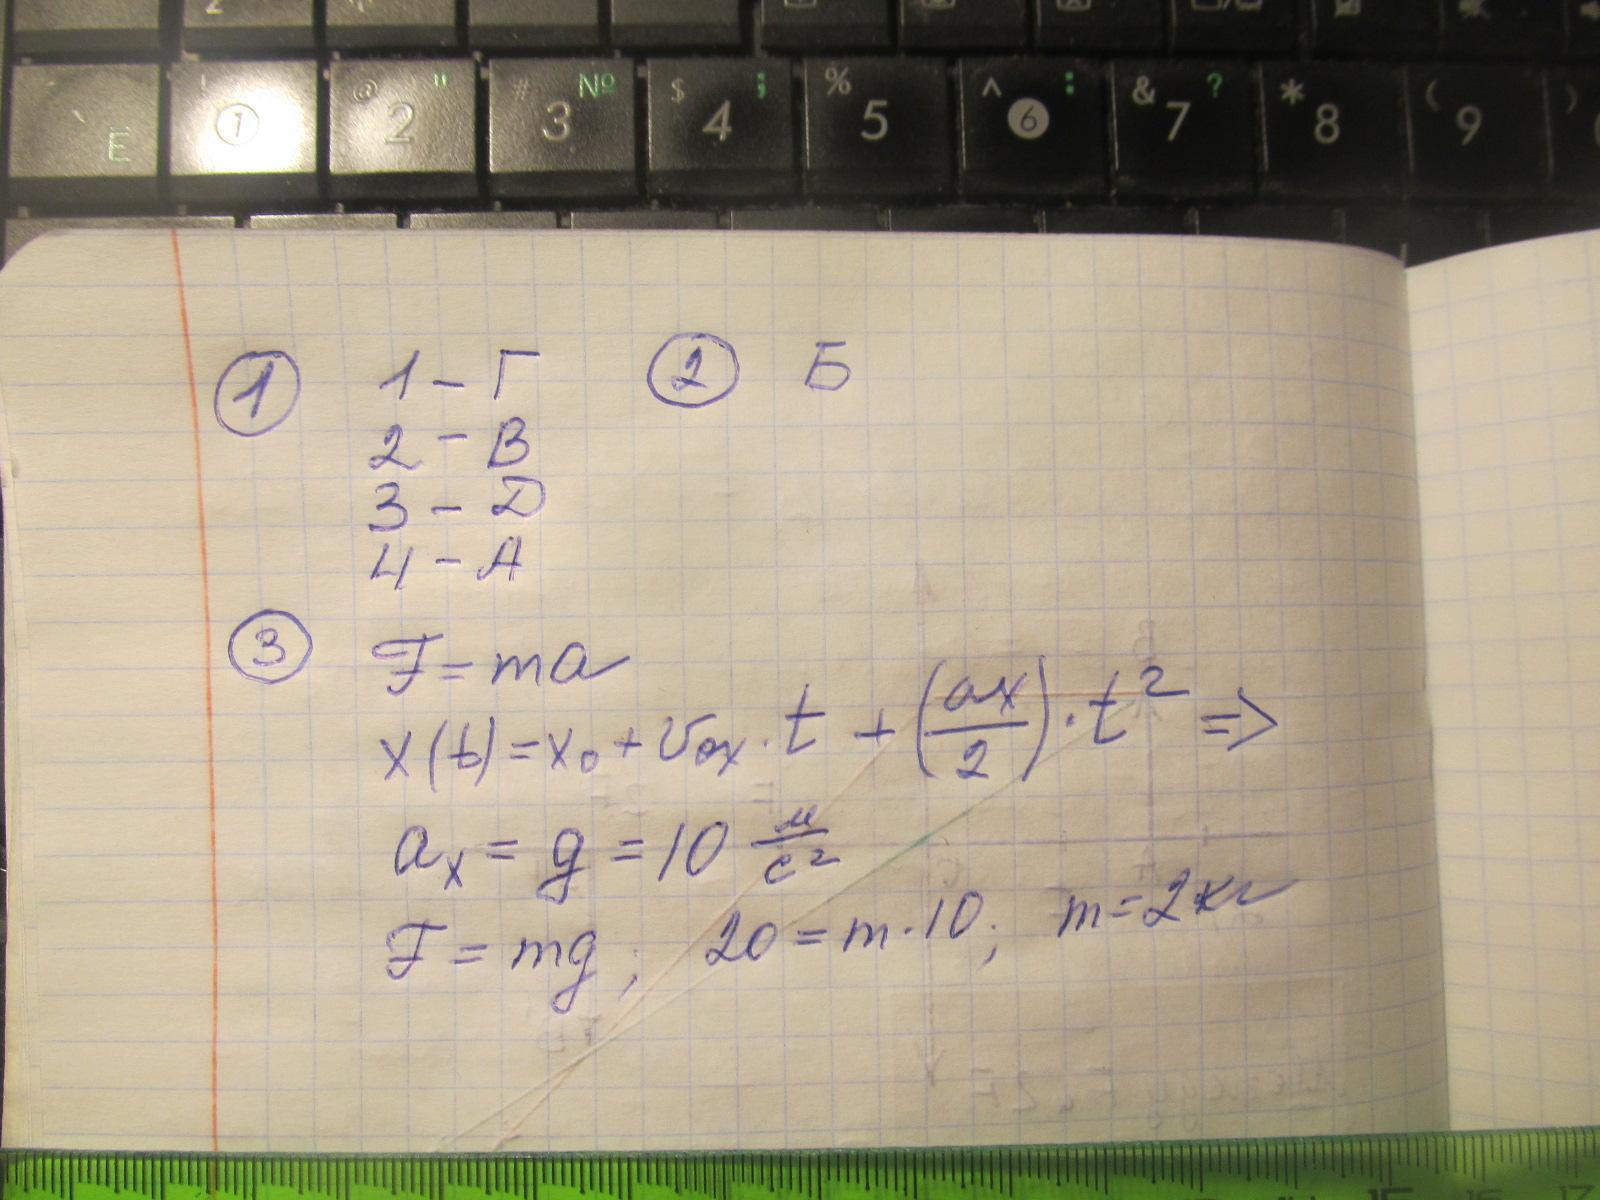 ` Ё ! 1 @ 2 " # 3 № $ 4 ; % 5 ^ 6 : & 7 ? * 8 ( 9 )
① 1 – Г ② Б
2 – В
3 – D
4 – А
③ F = ma
x(t) = x₀ + v₀ₓ · t + (aₓ/2) · t² =>
aₓ = g = 10 м/с²
F = mg ; 20 = m · 10 ; m = 2 кг